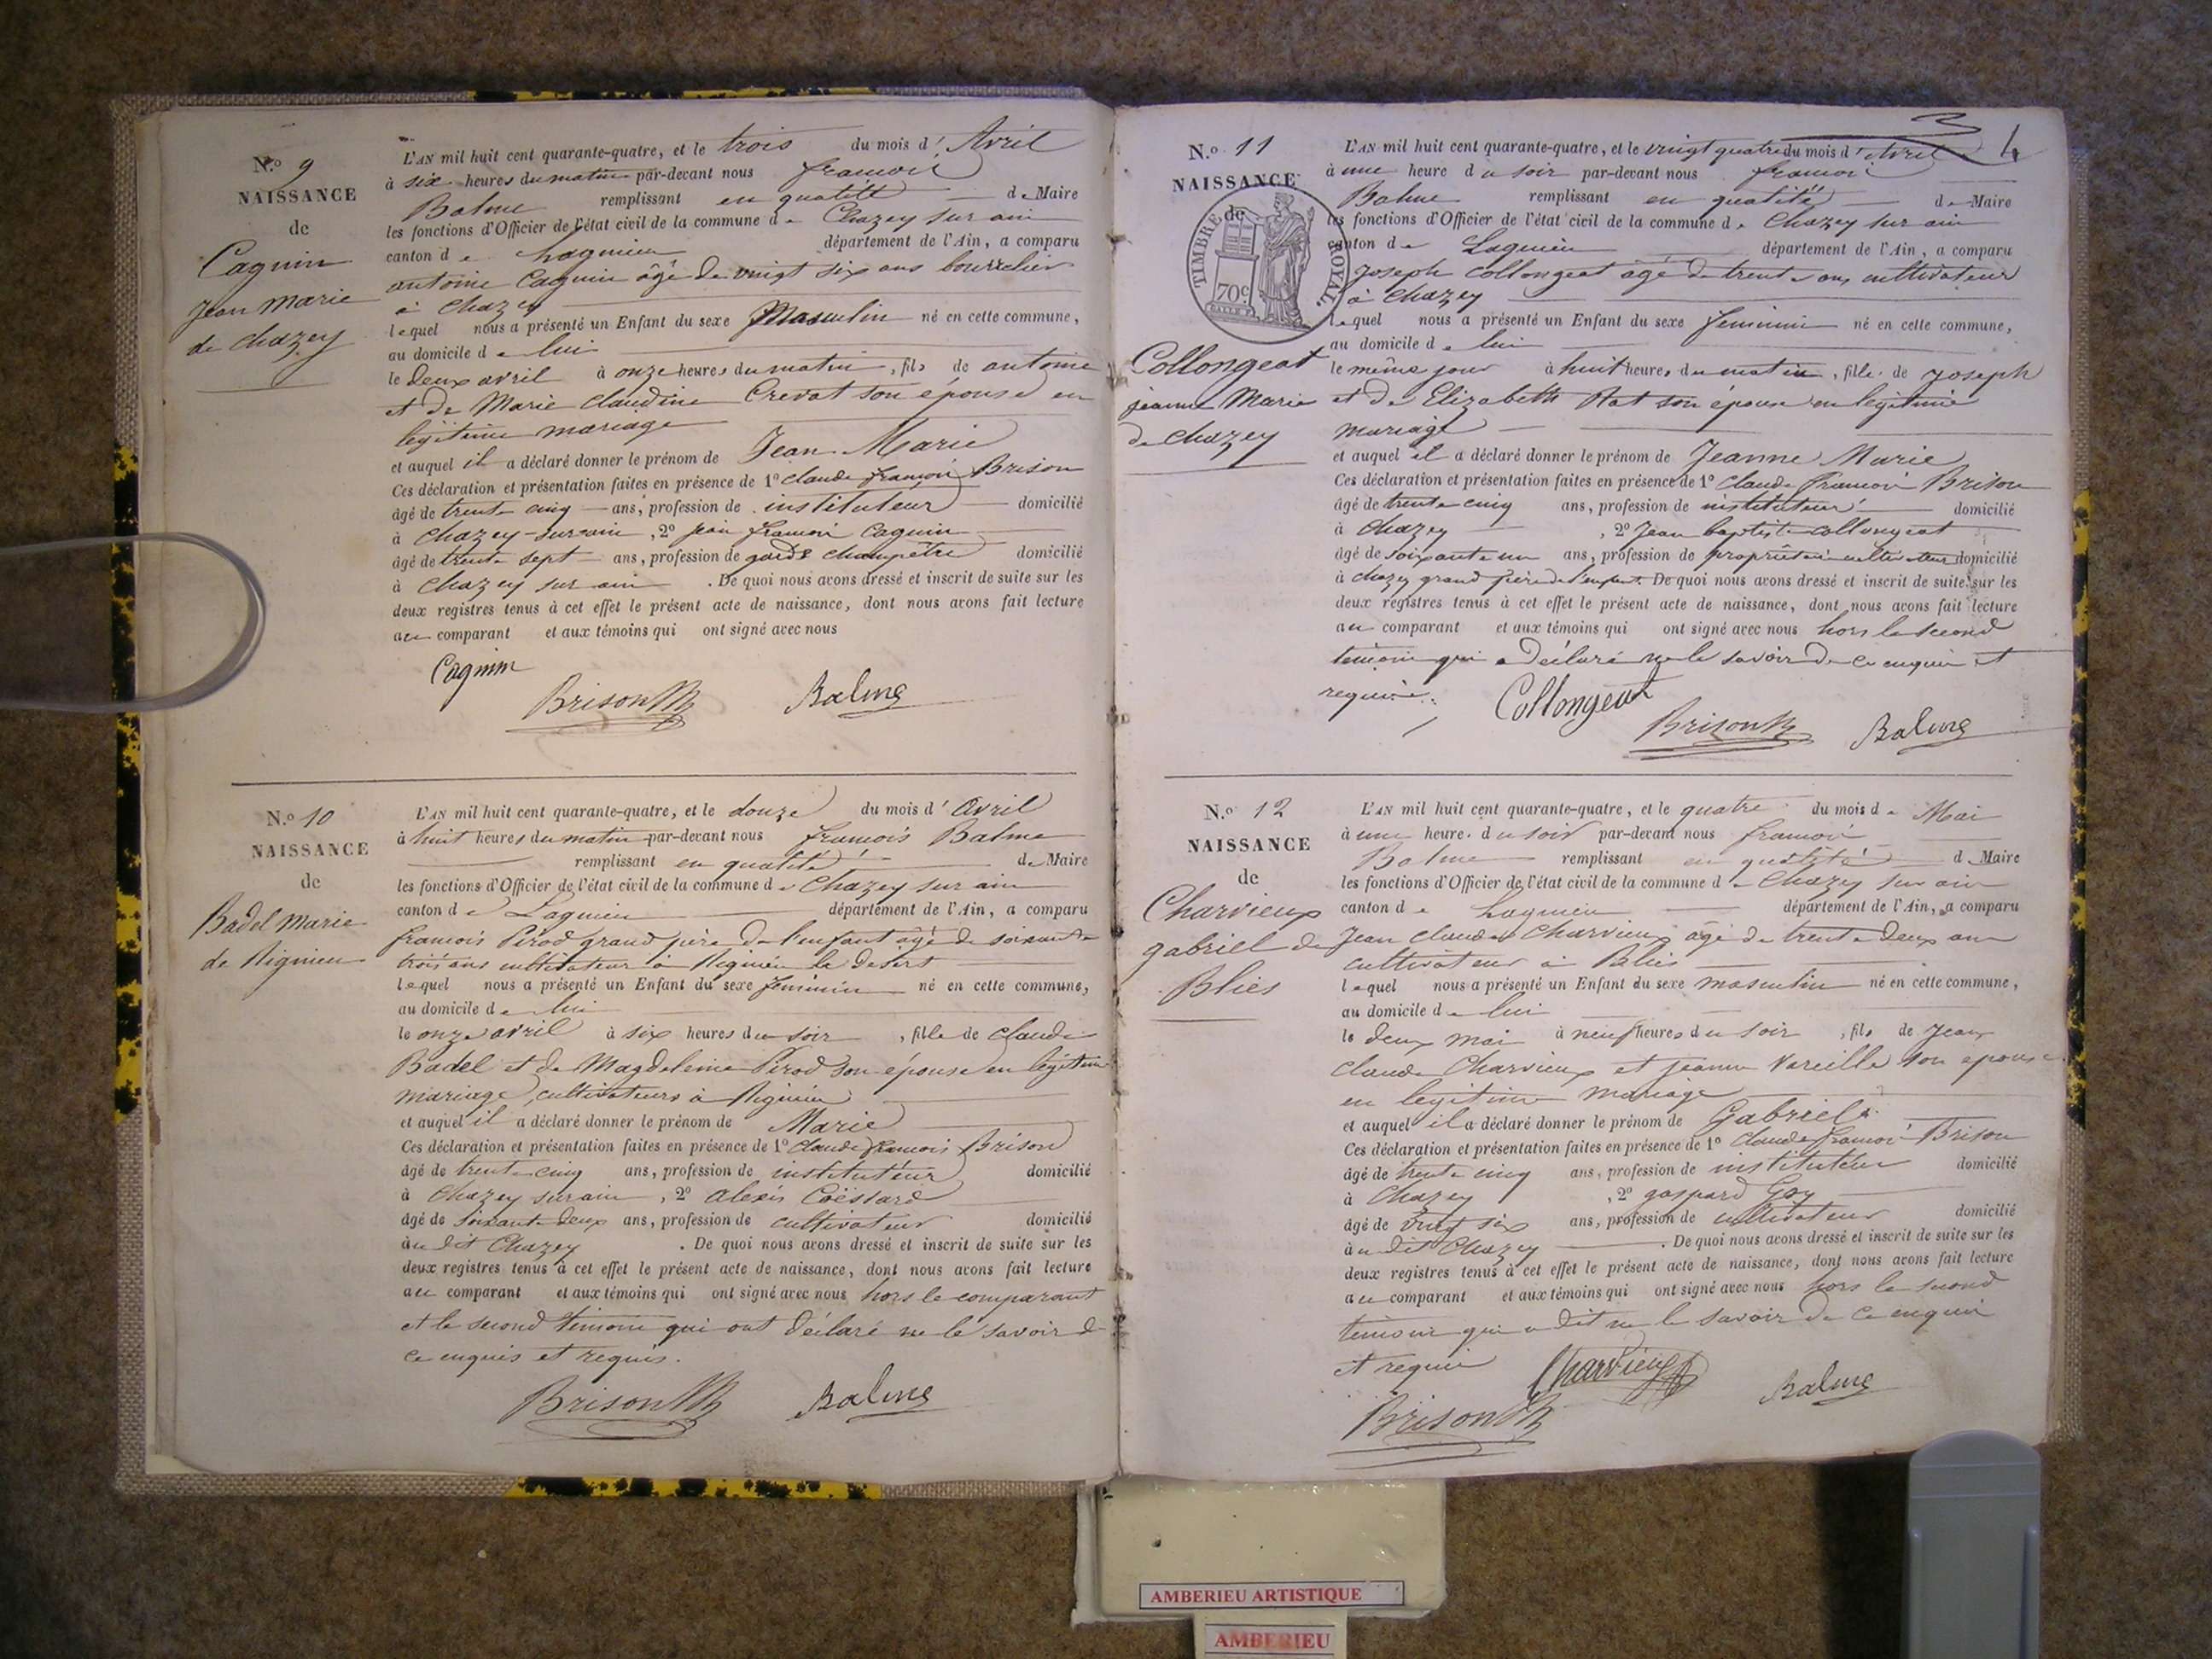 N.o 9
NAISSANCE
de
Cagnin
Jean Marie
de Chazey
L'AN mil huit cent quarante-quatre, et le trois du mois d' Avril
à six heures du matin par-devant nous françois
Balme remplissant en qualité de Maire
les fonctions d'Officier de l'état civil de la commune de Chazey sur ain
canton de Lagnieu département de l'Ain, a comparu
antoine Cagnin âgé de vingt six ans bourrelier
à Chazey
lequel nous a présenté un Enfant du sexe Masculin né en cette commune,
au domicile de lui
le deux avril à onze heures du matin, fils de antoine
et de Marie Claudine Crevat son épouse en
legitime mariage
et auquel il a déclaré donner le prénom de Jean Marie
Ces déclaration et présentation faites en présence de 1o Claude françois Brison
âgé de trente cinq ans, profession de instituteur domicilié
à Chazey-sur ain, 2o jean françois Cagnin
âgé de trente sept ans, profession de garde champêtre domicilié
à Chazey sur ain. De quoi nous avons dressé et inscrit de suite sur les
deux registres tenus à cet effet le présent acte de naissance, dont nous avons fait lecture
au comparant et aux témoins qui ont signé avec nous
Cagnin
Brison Balme
N.o 10
NAISSANCE
de
Badel Marie
de Rignieu
L'AN mil huit cent quarante-quatre, et le douze du mois d' Avril
à huit heures du matin par-devant nous françois Balme
remplissant en qualité de Maire
les fonctions d'Officier de l'état civil de la commune de Chazey sur ain
canton de Lagnieu département de l'Ain, a comparu
françois Pérod grand père de l'enfant âgé de soixante
trois ans cultivateur à Rignieu le desert
lequel nous a présenté un Enfant du sexe féminin né en cette commune,
au domicile de lui
le onze avril à six heures du soir, fille de Claude
Badel et de Magdeleine Pérod son épouse en légitime
mariage, cultivateurs à Rignieu
et auquel il a déclaré donner le prénom de Marie
Ces déclaration et présentation faites en présence de 1o Claude françois Brison
âgé de trente cinq ans, profession de instituteur domicilié
à Chazey sur ain, 2o alexis
âgé de soixante deux ans, profession de cultivateur domicilié
au dit Chazey. De quoi nous avons dressé et inscrit de suite sur les
deux registres tenus à cet effet le présent acte de naissance, dont nous avons fait lecture
au comparant et aux témoins qui ont signé avec nous hors le comparant
et le second témoin qui ont déclaré ne le savoir de
ce enquis et requis.
Brison Balme
3 4
N.o 11
NAISSANCE
de
TIMBRE ROYAL.
70c
Collongeat
jeanne Marie
de Chazey
L'AN mil huit cent quarante-quatre, et le vingt quatre du mois d' Avril
à une heure du soir par-devant nous françois
Balme remplissant en qualité de Maire
les fonctions d'Officier de l'état civil de la commune de Chazey sur ain
canton de Lagnieu département de l'Ain, a comparu
Joseph Collongeat âgé de trente ans cultivateur
à Chazey
lequel nous a présenté un Enfant du sexe feminin né en cette commune,
au domicile de lui
le même jour à huit heures du matin, fille de Joseph
et de Elizabeth Rat son épouse en legitime
mariage
et auquel il a déclaré donner le prénom de Jeanne Marie
Ces déclaration et présentation faites en présence de 1o Claude françois Brison
âgé de trente cinq ans, profession de instituteur domicilié
à Chazey, 2o Jean baptiste Collongeat
âgé de soixante un ans, profession de propriétaire cultivateur domicilié
à chazey grand père de l'enfant. De quoi nous avons dressé et inscrit de suite sur les
deux registres tenus à cet effet le présent acte de naissance, dont nous avons fait lecture
au comparant et aux témoins qui ont signé avec nous hors le second
temoin qui a déclaré ne le savoir de ce enquis et
requis.
Collongeat
Brison Balme
N.o 12
NAISSANCE
de
Charvieux
gabriel de
Blies
L'AN mil huit cent quarante-quatre, et le quatre du mois de Mai
à une heure du soir par-devant nous françois
Balme remplissant en qualité de Maire
les fonctions d'Officier de l'état civil de la commune de Chazey sur ain
canton de Lagnieu département de l'Ain, a comparu
Jean Claude Charvieux âgé de trente deux ans
cultivateur à Blies
lequel nous a présenté un Enfant du sexe masculin né en cette commune,
au domicile de lui
le deux mai à neuf heures du soir, fils de Jean
Claude Charvieux et jeanne Vareille son epouse
en legitime mariage
et auquel il a déclaré donner le prénom de Gabriel
Ces déclaration et présentation faites en présence de 1o Claude françois Brison
âgé de trente cinq ans, profession de instituteur domicilié
à Chazey, 2o gaspard Goy
âgé de vingt six ans, profession de cultivateur domicilié
au dit Chazey. De quoi nous avons dressé et inscrit de suite sur les
deux registres tenus à cet effet le présent acte de naissance, dont nous avons fait lecture
au comparant et aux témoins qui ont signé avec nous hors le second
témoin qui a dit ne le savoir de ce enquis
et requis Charvieux
Brison Balme
AMBERIEU ARTISTIQUE
AMBERIEU